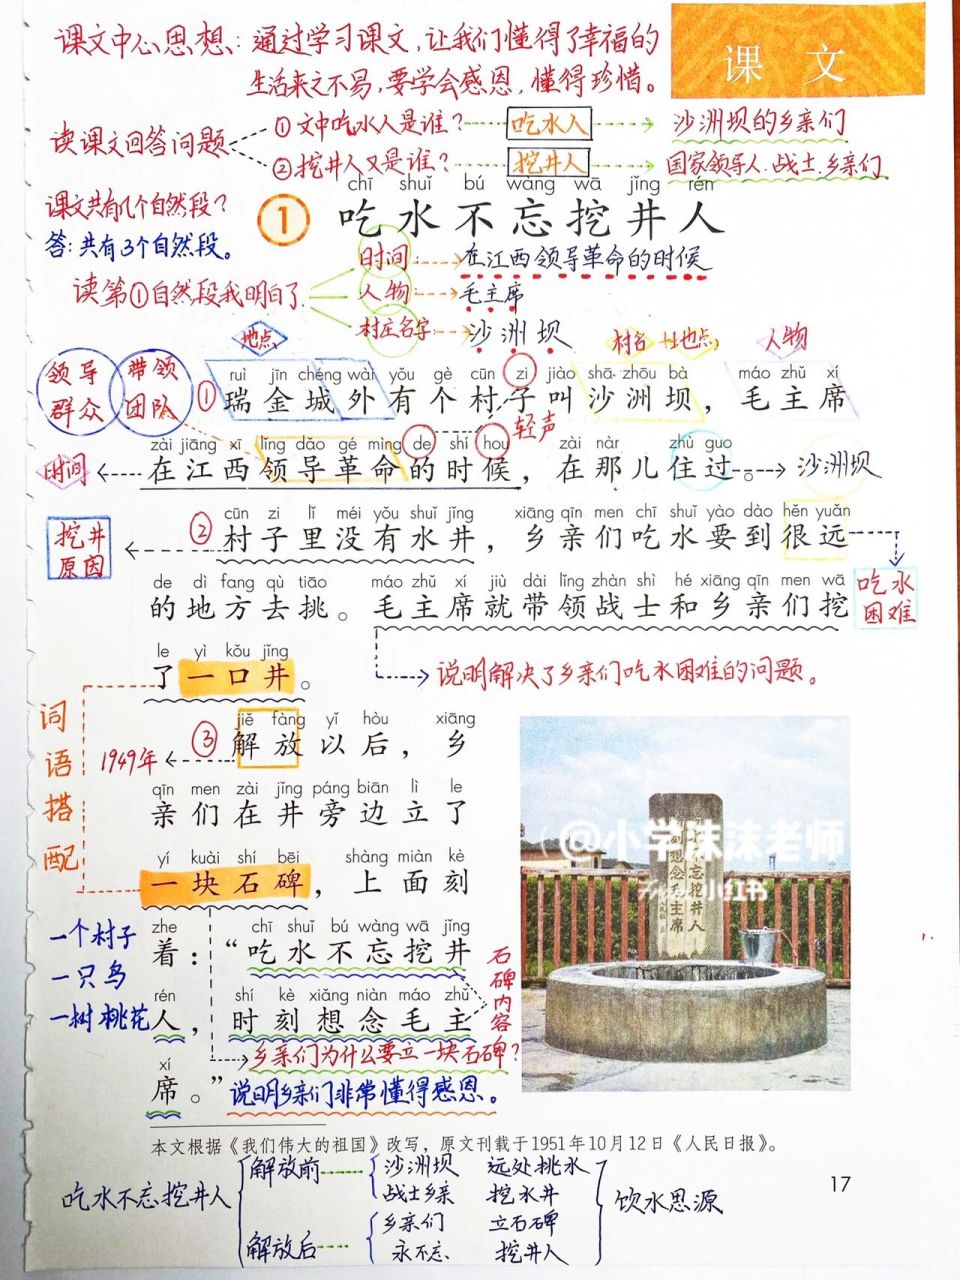 课文中心思想:通过学习课文,让我们懂得了幸福的
生活来之不易,要学会感恩,懂得珍惜。
课 文
读课文回答问题
①文中吃水人是谁? 吃水人 沙洲坝的乡亲们
②挖井人又是谁? 挖井人 国家领导人.战士.乡亲们
课文共有几个自然段?
答:共有3个自然段。
chī shuǐ bú wàng wā jǐng rén
① 吃水不忘挖井人
读第①自然段我明白了
时间: 在江西领导革命的时候
人物: 毛主席
村庄名字 沙洲坝
地点 村名 +地点 人物
领导群众
带领团队
ruì jīn chéng wài yǒu gè cūn zi jiào shā zhōu bà máo zhǔ xí
①瑞金城外有个村子叫沙洲坝,毛主席
轻声
zài jiāng xī lǐng dǎo gé mìng de shí hou zài nàr zhù guo
时间 在江西领导革命的时候,在那儿住过。 沙洲坝
cūn zi lǐ méi yǒu shuǐ jǐng xiāng qīn men chī shuǐ yào dào hěn yuǎn
②村子里没有水井,乡亲们吃水要到很远
挖井原因
吃水困难
de dì fang qù tiāo máo zhǔ xí jiù dài lǐng zhàn shì hé xiāng qīn men wā
的地方去挑。毛主席就带领战士和乡亲们挖
le yì kǒu jǐng
了一口井。
说明解决了乡亲们吃水困难的问题。
词语搭配
jiě fàng yǐ hòu xiāng
③解放以后,乡
1949年
qīn men zài jǐng páng biān lì le
亲们在井旁边立了
yí kuài shí bēi shàng miàn kè
一块石碑,上面刻
zhe chī shuǐ bú wàng wā jǐng
着:“吃水不忘挖井
rén shí kè xiǎng niàn máo zhǔ
人,时刻想念毛主
xí
席。”
一个村子
一只鸟
一树桃花
石碑内容
乡亲们为什么要立一块石碑?
说明乡亲们非常懂得感恩。
吃水不忘挖井人
时刻想念毛主席
@小学沫沫老师
小红书
本文根据《我们伟大的祖国》改写,原文刊载于1951年10月12日《人民日报》。
17
吃水不忘挖井人
解放前 沙洲坝 远处挑水
战士乡亲 挖水井
解放后 乡亲们 立石碑
永不忘 挖井人
饮水思源